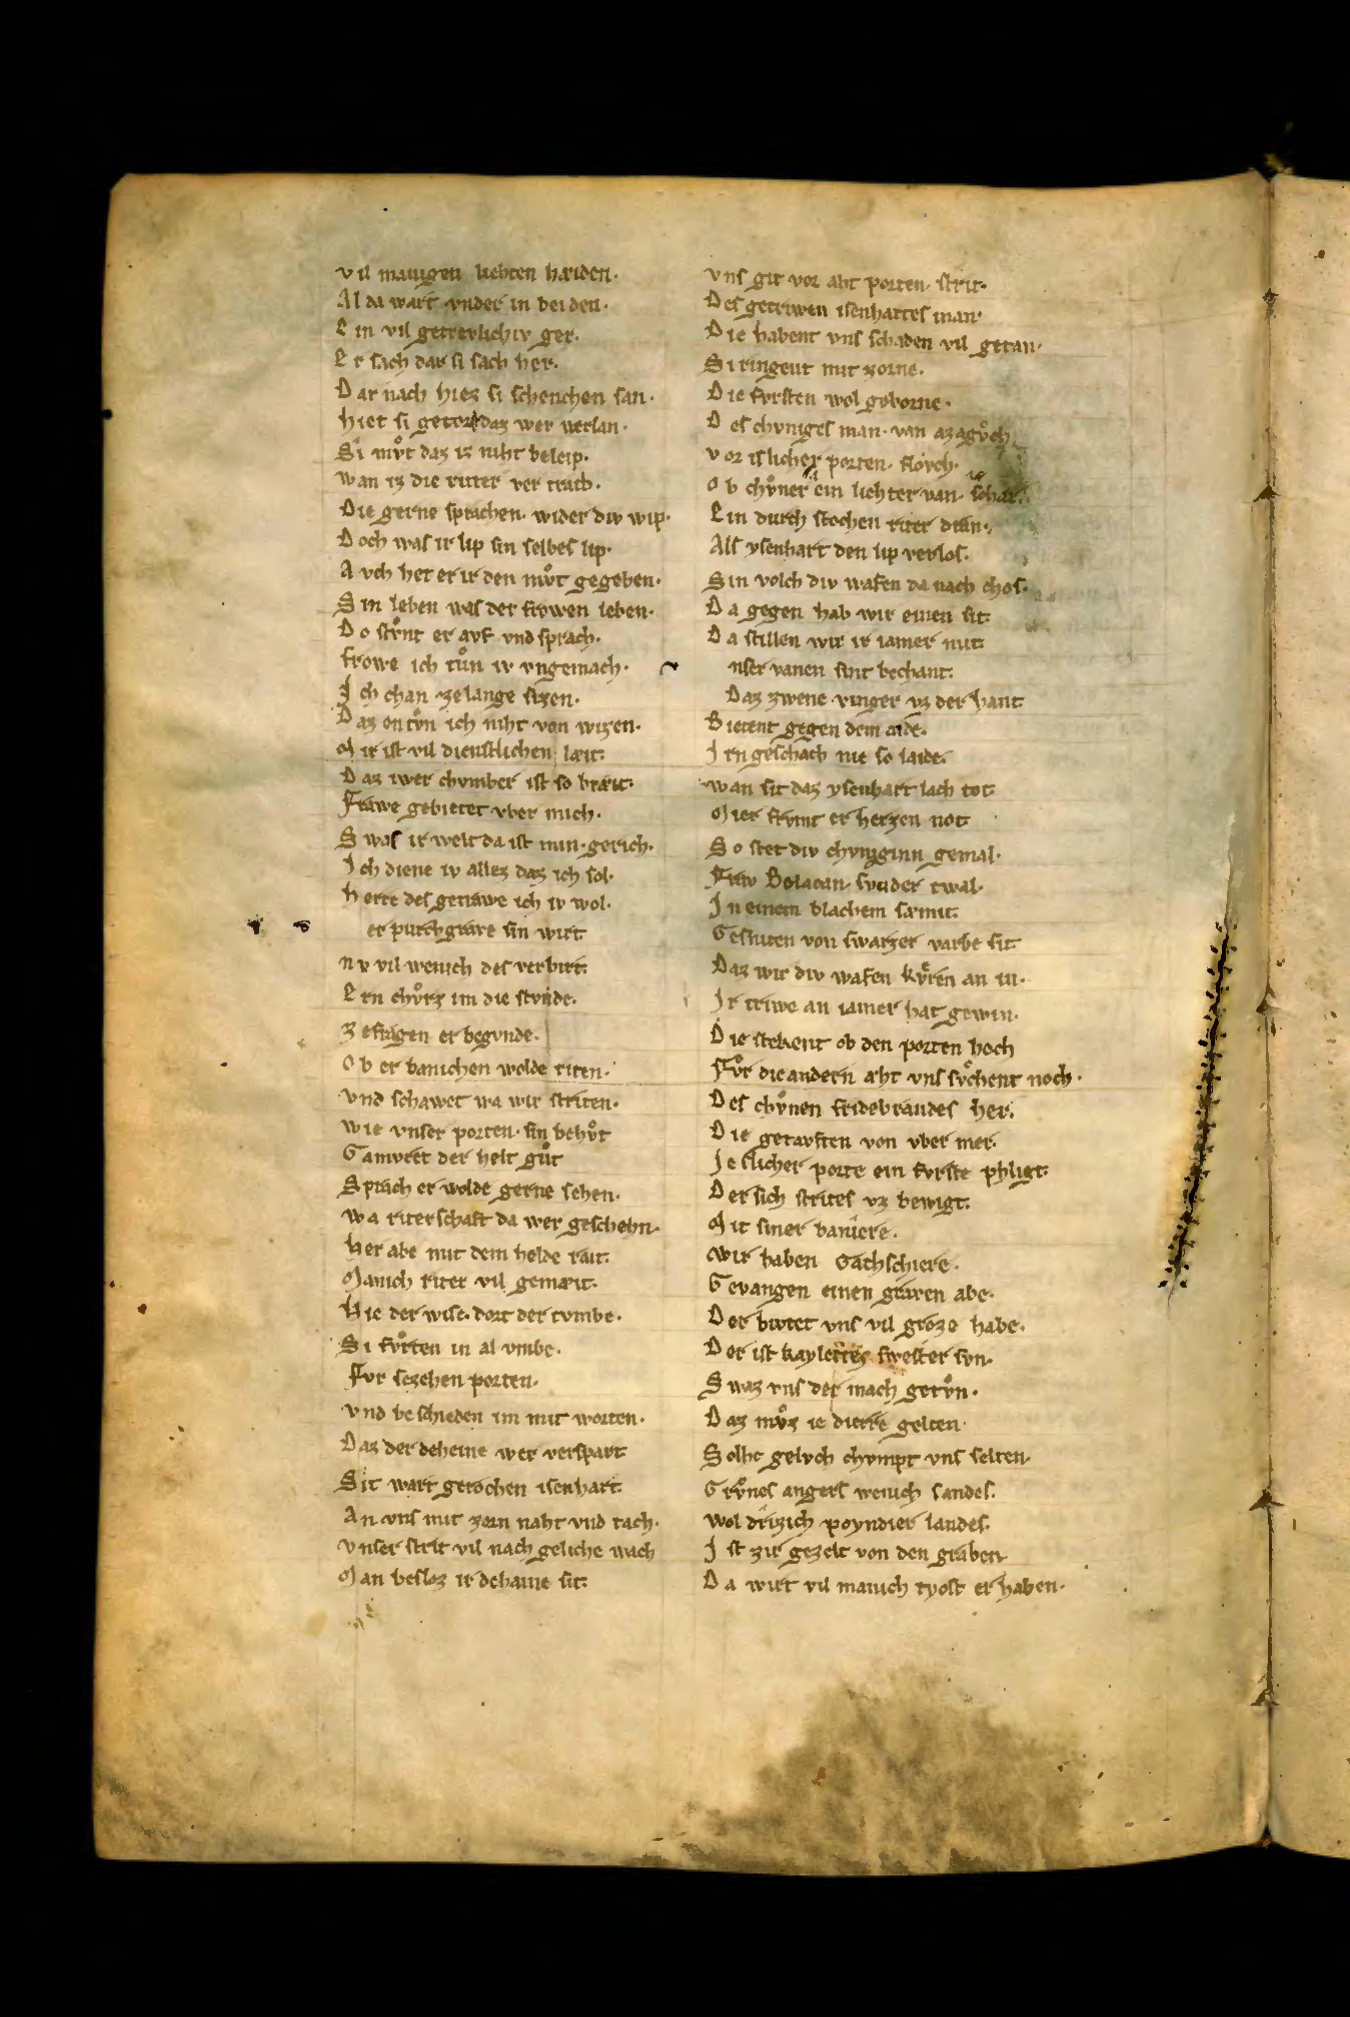 vil manigen liehten hæiden.
Al da wart vnder in beiden.
Ein vil getrevlichiv ger.
Er sach dar si sach her.
Dar nach hiez si schenchen san.
hiet si getorst daz wer verlan.
Si mvͦt daz iz niht beleip.
wan iz die ritter ver traib.
Die gerne sprachen. wider div wip.
Doch was ir lip sin selbes lip.
Avch het er ir den mvͦt gegeben.
Sin leben was der frowen leben.
Do stvͦnt er avf vnd sprach.
frowe ich tuͦn iv vngemach.
Ich chan zelange sizen.
Daz en tvͦn ich niht von wizen.
Mir ist vil dienstlichen læit.
Daz iwer chvmber ist so bræit.
Frawe gebietet vber mich.
Swas ir welt da ist min gerich.
Ich diene iv alles daz ich sol.
herre des getrawe ich iv wol.
er purchgrave sin wirt
nv vil wenich des verbirt.
Ern chvͦrz im die stvnde.
Zefragen er begvnde.
Ob er banichen wolde riten.
vnd schawet wa wir striten.
wie vnser porten. sin behvͦt
Gamvret der helt guͦt
Sprach er wolde gerne sehen.
wa riterschaft da wer geschehn.
her abe mit dem helde rait.
Manich riter vil gemæit.
Hie der wise. dort der tvmbe.
Si fvͦrten in al vmbe.
Fvr sezehen porten.
vnd beschieden im mit worten.
Daz der deheine wer verspart
Sit wart gerochen isenhart.
An vns mit zorn naht vnd tach.
vnser strit vil nach geliche wach
Man besloz ir dehaine sit.
vns git vor aht porten. strit.
Des getriwen isenhartes man.
Die habent vns schaden vil getan.
Si ringent mit zorne.
Die fvrsten wol geborne.
Des chvniges man. van azagvͦch
vor islicher porten. flovch.
Ob chvͦner ein liehter van. schar
Ein durch stochen riter dran.
Als ysenhart den lip verlos.
Sin volch div wafen da nach chos.
Da gegen hab wir einen sit.
Da stillen wir ir iamer mit
nser vanen sint bechant.
Daz zwene vinger vz der hant
Bietent gegen dem aide.
Irn geschach nie so laide.
wan sit daz ysenhart lach tot
Mier frvmt er herzen not
So stet div chvniginn gemal.
Fraw Belacan. svnder twal.
In einem blachem sæmit.
Gesniten von swarzer varbe sit
Daz wir div wafen kvͤren an in.
Ir triwe an iamer hat gewin.
Die stekent ob den porten hoch
Fvͦr die andern aht vns svͦchent noch.
Des chvͦnen fridebrandes her.
Die getavften von vber mer.
Ieslicher porte ein fvrste phligt.
Der sich strites vz bewigt.
Mit siner baniere.
wir haben Gachschiere.
Gevangen einen graven abe.
Der bivtet vns vil groze habe.
Der ist kayletes swester svn.
Swaz vns der mach getvͦn.
Daz mvͦz ie dirre gelten
Solhe gelvch chvmpt vns selten.
Grvͦnes angers wenich sandes.
wol drizich poyndier landes.
Ist zir gezelt von den graben
Da wirt vil manich tyost erhaben.